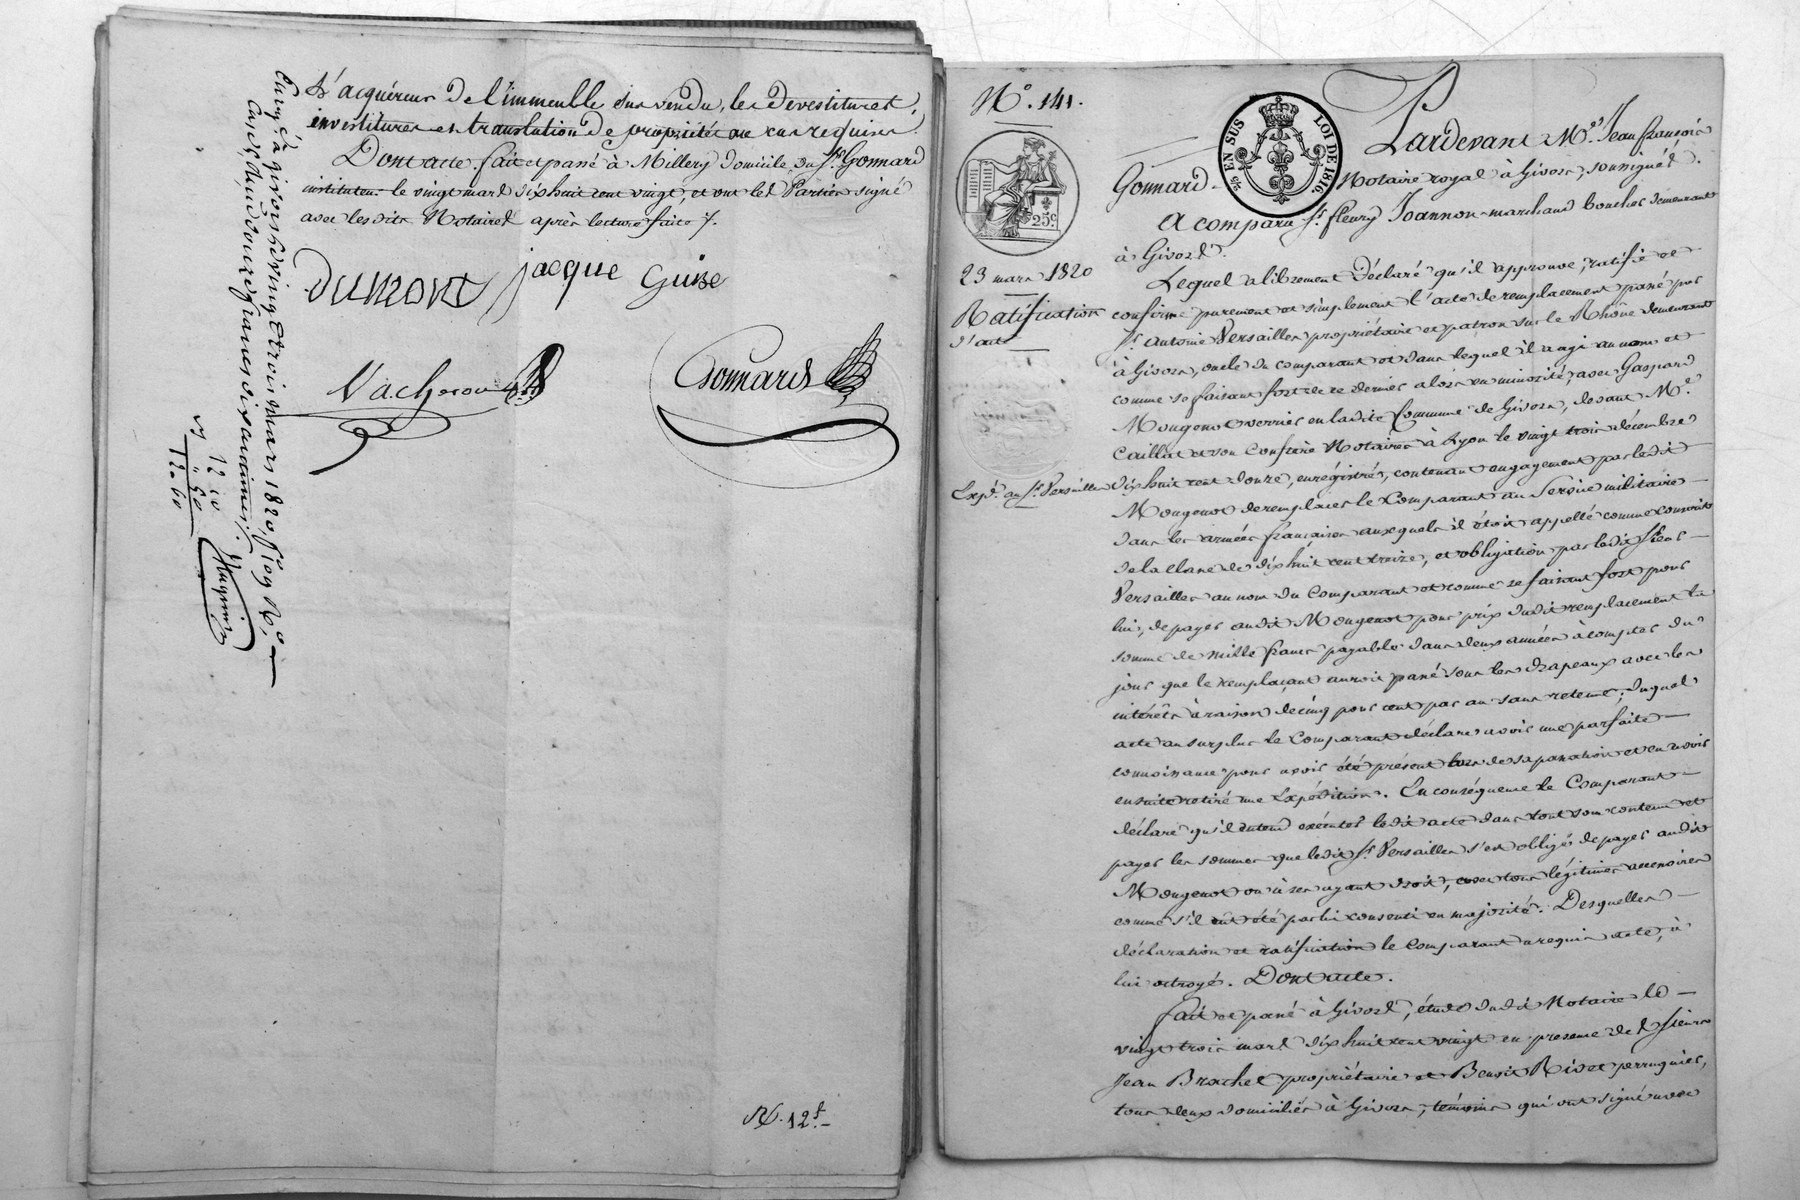 L'acquéreur de l'immeuble sus vendu, les devestitures
investitures et translation de propriété au cas requises.
Dont acte fait et passé à Millery domicile du Sr. Gonnard
instituteur le vingt mars dix huit cent vingt, et ont les Parties signé
avec lesdits Notaires après lecture faite /.
Dumont jacque Guise
Vacheron
Gonnard
Enreg. à givors le vingt trois mars 1820, fo. 109 Ro.
12 10
" 50
12 60
R. 12f
No. 141.
23 mars 1820
Ratification
d'acte
Expé. au Sr. Versailles
EN SUS LOI DE 1816.
25c.
Pardevant Me. Jean francois
Gonnard Notaire royal à Givors, soussigné.
A comparu Sr. fleury Joannon marchand boucher demeurant
à Givors.
Lequel a librement déclaré qu'il approuve, ratifie et
confirme purement et simplement l'acte de remplacement passé par
Sr. Antoine Versailles propriétaire et patron sur le Rhône demeurant
à Givors, oncle du comparant et dans lequel il a agi au nom et
comme se faisant fort de ce dernier alors en minorité, avec Gaspard
Mougenot verrier en ladite Commune de Givors, devant Me.
Caillat et son Confrère Notaires à Lyon le vingt trois décembre
dix huit cent douze, enrégistré, contenant engagement par ledit
Mougenot de remplacer le Comparant au Service militaire
dans les armées françaises auxquels il étoit appellé comme conscrit
de la classe de dix huit cent treize, et obligation par ledit Sieur
Versailles au nom du Comparant et comme se faisant fort pour
lui, de payer audit Mougenot pour prix dudit remplacement la
somme de mille francs payable dans deux années à compter du
jour que le remplaçant auroit passé sous les drapeaux avec les
intérêts à raison de cinq pour cent par an sans retenue; duquel
acte au surplus le Comparant déclare avoir une parfaite
connoissance pour avoir été présent lors de sa passation et en avoir
ensuite retiré une Expédition. En conséquence le Comparant
déclare qu'il entend exécuter ledit acte dans tout son contenu et
payer les sommes que ledit Sr. Versailles s'est obligé de payer audit
Mougenot ou à ses ayant droit, avec tous légitimes accessoires
comme s'il eût été par lui consenti en majorité. Desquelles
déclaration et ratification le Comparant a requis acte, à
lui octroyé. Dont acte.
fait et passé à Givors, étude dudit Notaire le
vingt trois mars dix huit cent vingt en présence des Sieurs
Jean Brachet propriétaire et Benoit Rivet perruquier,
tous deux domiciliés à Givors, témoins qui ont signé avec